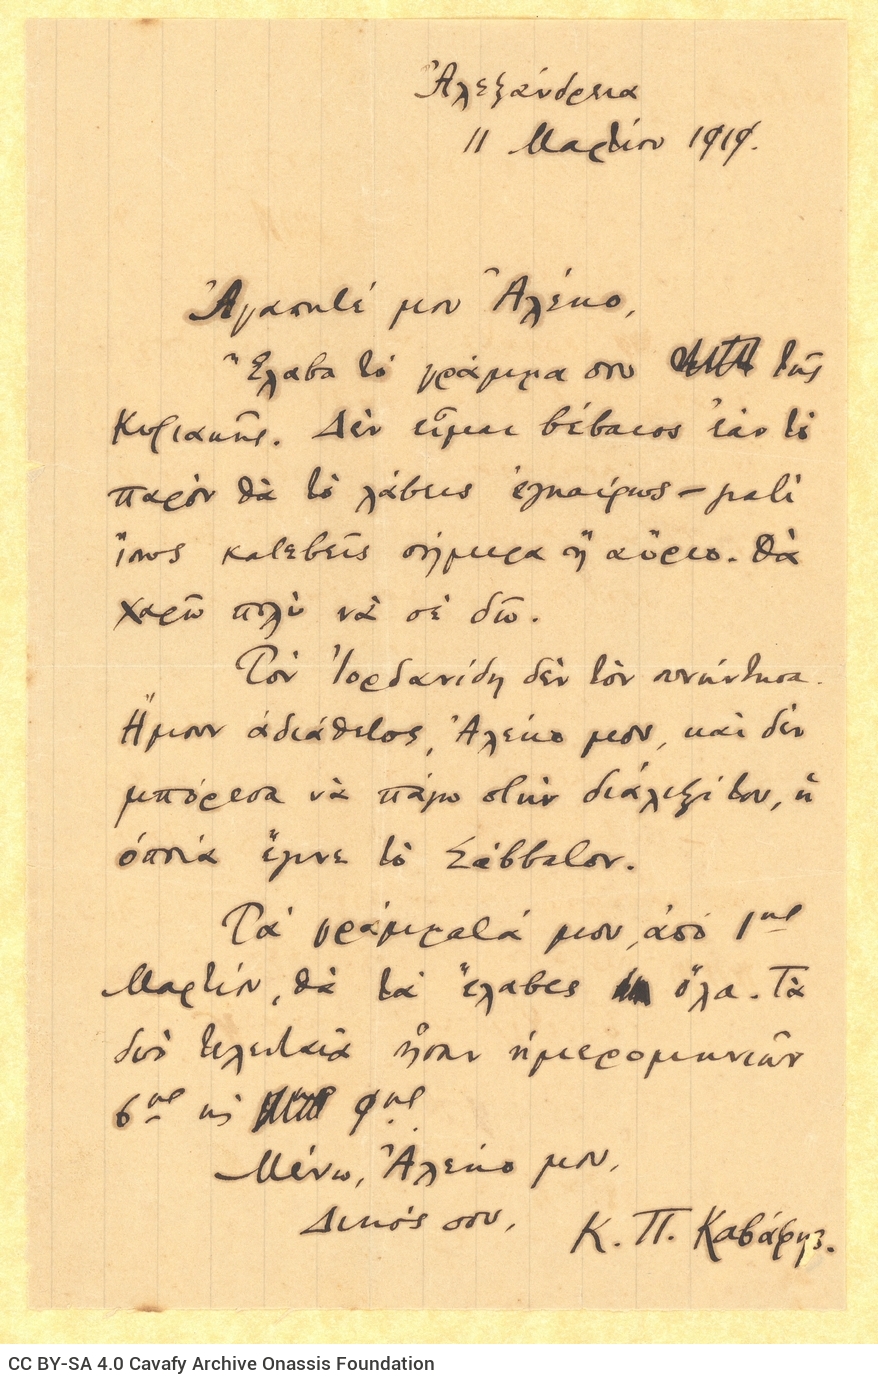 Ἀλεξάνδρεια
11 Μαρτίου 1919.
Ἀγαπητέ μου Ἀλέκο,
Ἔλαβα τὸ γράμμα σου τῆς
Κυριακῆς. Δὲν εἶμαι βέβαιος ἐὰν τὸ
παρὸν θὰ τὸ λάβεις ἐγκαίρως — γιατὶ
ἴσως κατεβεῖς σήμερα ἢ αὔριο. Θὰ
χαρῶ πολὺ νὰ σὲ δῶ.
Τὸν Ἰορδανίδη δὲν τὸν συνήντησα.
Ἤμουν ἀδιάθετος, Ἀλέκο μου, καὶ δὲν
μπόρεσα νὰ πάγω στὴν διάλεξί του, ἡ
ὁποία ἔγινε τὸ Σάββατον.
Τὰ γράμματά μου, ἀπὸ 1ης
Μαρτίου, θὰ τὰ ἔλαβες ὅλα. Τὰ
δυὸ τελευταῖα ἦσαν ἡμερομηνιῶν
6ης κ 9ης.
Μένω, Ἀλέκο μου,
Δικός σου,
Κ. Π. Καβάφης.
CC BY-SA 4.0 Cavafy Archive Onassis Foundation